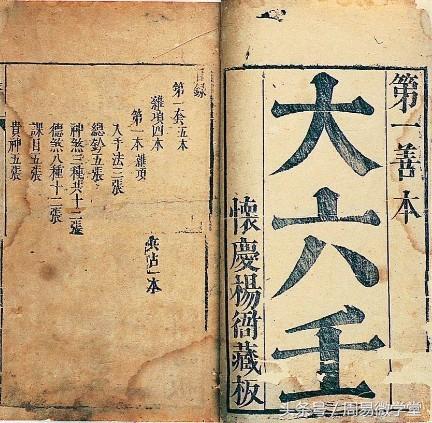 第一善本
大六壬
懷慶楊衙藏板
目錄
第一套五本
雜項四本
第一本雜項
入手法三張
總鈐五張
神煞三種共十二張
德煞八種十二張
課目五張
貴神五張
兵占一本
头条号/周易微学堂